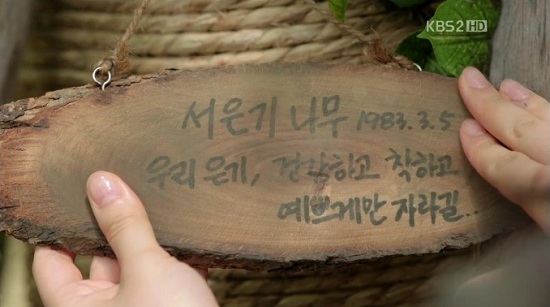 KBS2 HD
서은기 나무 1983.3.5
우리 은기, 건강하고 착하고
예쁘게만 자라길..